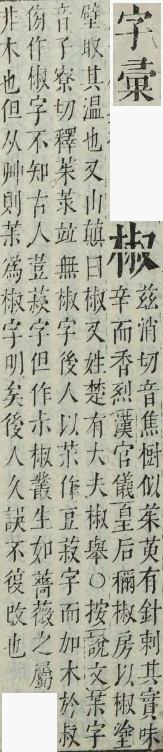 字彙
椒
兹消切音焦樹似茱萸有針刺其實味
辛而香烈漢官儀皇后稱椒房以椒塗
壁取其温也又山顛曰椒又姓楚有大夫椒舉○按說文茮字
音子寮切釋茱茮竝無椒字後人以茮作豆菽字而加木於叔
傍作椒字不知古人荳菽字但作尗椒叢生如薔薇之屬
非木也但从艸則茮爲椒字明矣後人久誤不復改也